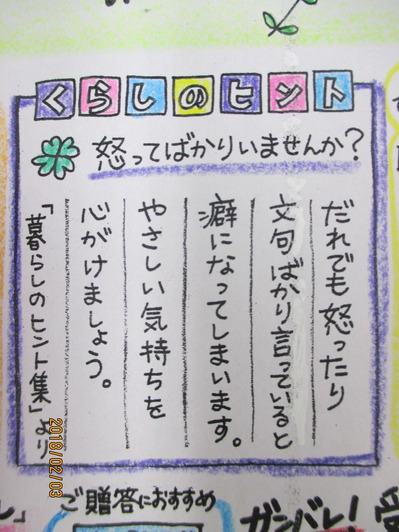 くらしのヒント
怒ってばかりいませんか?
だれでも怒ったり
文句ばかり言っていると
癖になってしまいます。
やさしい気持ちを
心がけましょう。
「暮らしのヒント集」より
ご贈答におすすめ
ガンバレ!
受
2018/02/03